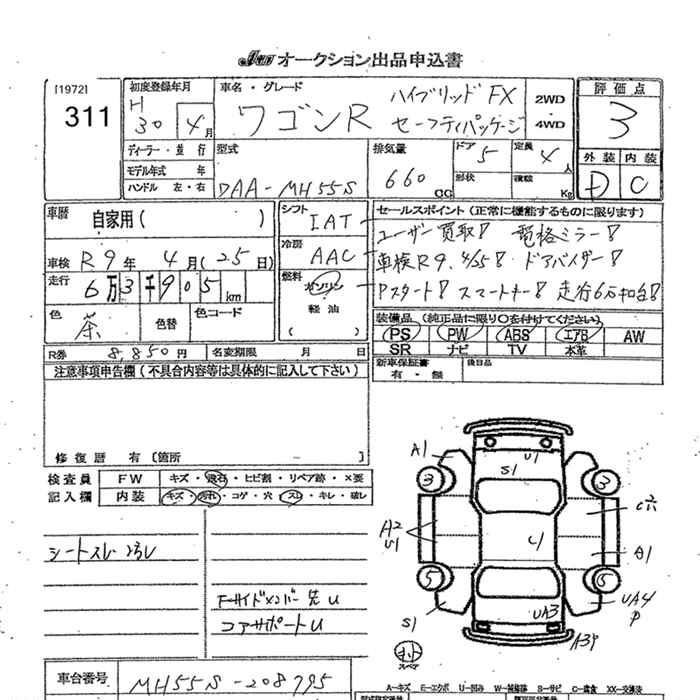 Jau オークション出品申込書
[1972]
311
初度登録年月
H
30年 4月
ディーラー・並行
モデル年式 年
ハンドル 左・右
車名・グレード
ワゴンR
ハイブリッド FX
セーフティパッケージ
2WD
4WD
評価点
3
外装 内装
D C
型式
DAA-MH55S
排気量
660 CC
ドア
5
定員
4 人
形状
積載 Kg
車歴 自家用( )
車検 R9年 4月(25日)
走行 6万3千905 km
色 茶
色替
色コード
シフト
IAT
冷房
AAC
燃料
ガソリン
軽油
( )
セールスポイント(正常に機能するものに限ります)
ユーザー買取! 電格ミラー!
車検R9.4/25! ドアバイザー!
Pスタート! スマートキー! 走行6万km台!
装備品(純正品に限り○を付けてください)
PS PW ABS エアB AW
SR ナビ TV 本革
新車保証書
有・無
後日品
R券 8,850円
名変期限 月 日
注意事項申告欄(不具合内容等は具体的に記入して下さい)
修復歴 有〔箇所
検査員
記入欄
FW キズ・飛石・ヒビ割・リペア跡・×要
内装 キズ・汚れ・コゲ・穴・スレ・キレ・破レ
シートスレ
Fサイドメンバー先U
コアサポートU
A1
U1
S1
3
3
A2
U1
C1
A1
5
5
S1
UA3
UA4
P
スペア
車台番号 MH55S-208795
A-キズ E-エクボ U-凹み W-補修跡 S-サビ C-腐食 XX-交換済